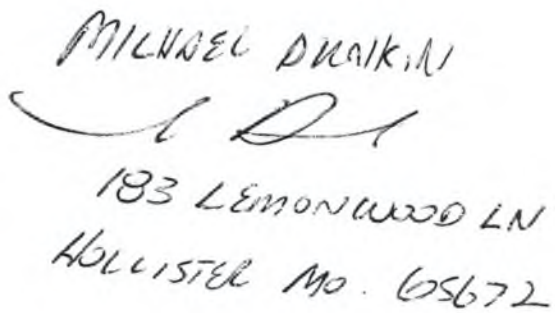 MICHAEL
183 LEMONWOOD LN
HOLLISTER MO. 65672